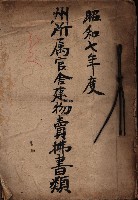 昭和七年度
州所属官舎建物賣拂書類